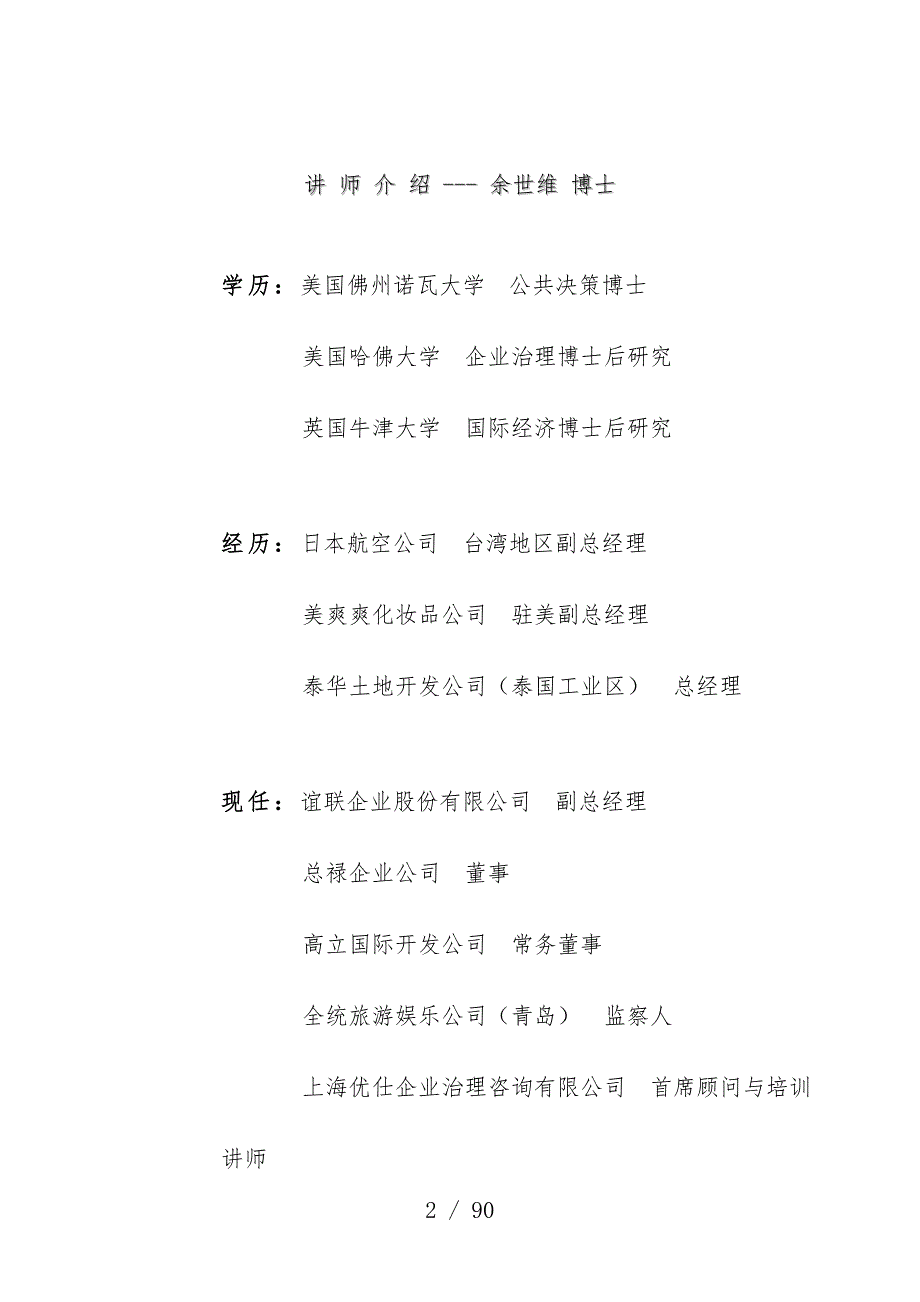 讲 师 介 绍 --- 余世维 博士
学历：美国佛州诺瓦大学　公共决策博士
美国哈佛大学　企业治理博士后研究
英国牛津大学　国际经济博士后研究
经历：日本航空公司　台湾地区副总经理
美爽爽化妆品公司　驻美副总经理
泰华土地开发公司（泰国工业区）　总经理
现任：谊联企业股份有限公司　副总经理
总禄企业公司　董事
高立国际开发公司　常务董事
全统旅游娱乐公司（青岛）　监察人
上海优仕企业治理咨询有限公司　首席顾问与培训
讲师
2 / 90